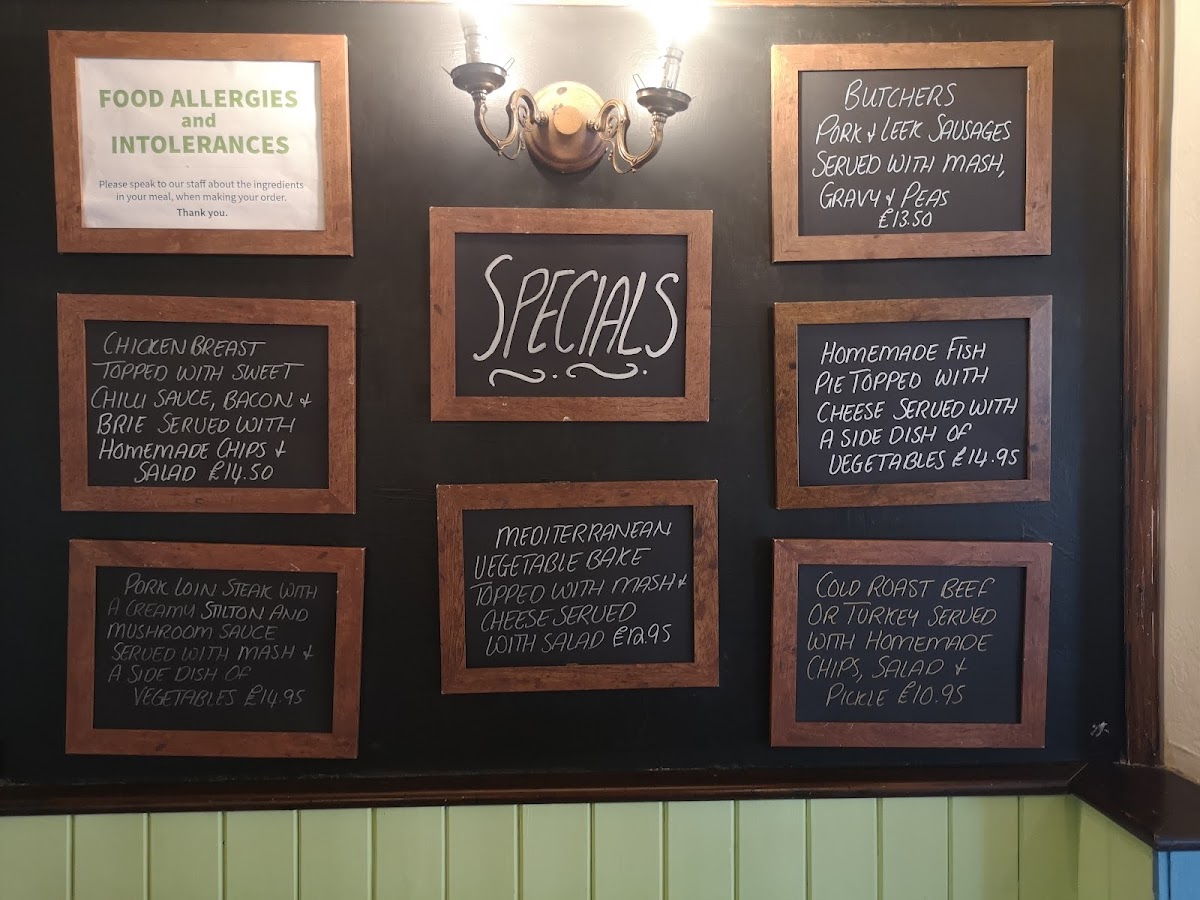 FOOD ALLERGIES
and
INTOLERANCES
Please speak to our staff about the ingredients
in your meal, when making your order.
Thank you.
CHICKEN BREAST
TOPPED WITH SWEET
CHILLI SAUCE, BACON &
BRIE SERVED WITH
HOMEMADE CHIPS &
SALAD £14.50
PORK LOIN STEAK WITH
A CREAMY STILTON AND
MUSHROOM SAUCE
SERVED WITH MASH &
A SIDE DISH OF
VEGETABLES £14.95
SPECIALS
MEDITERRANEAN
VEGETABLE BAKE
TOPPED WITH MASH &
CHEESE SERVED
WITH SALAD £12.95
BUTCHERS
PORK & LEEK SAUSAGES
SERVED WITH MASH,
GRAVY & PEAS
£13.50
HOMEMADE FISH
PIE TOPPED WITH
CHEESE SERVED WITH
A SIDE DISH OF
VEGETABLES £14.95
COLD ROAST BEEF
OR TURKEY SERVED
WITH HOMEMADE
CHIPS, SALAD &
PICKLE £10.95